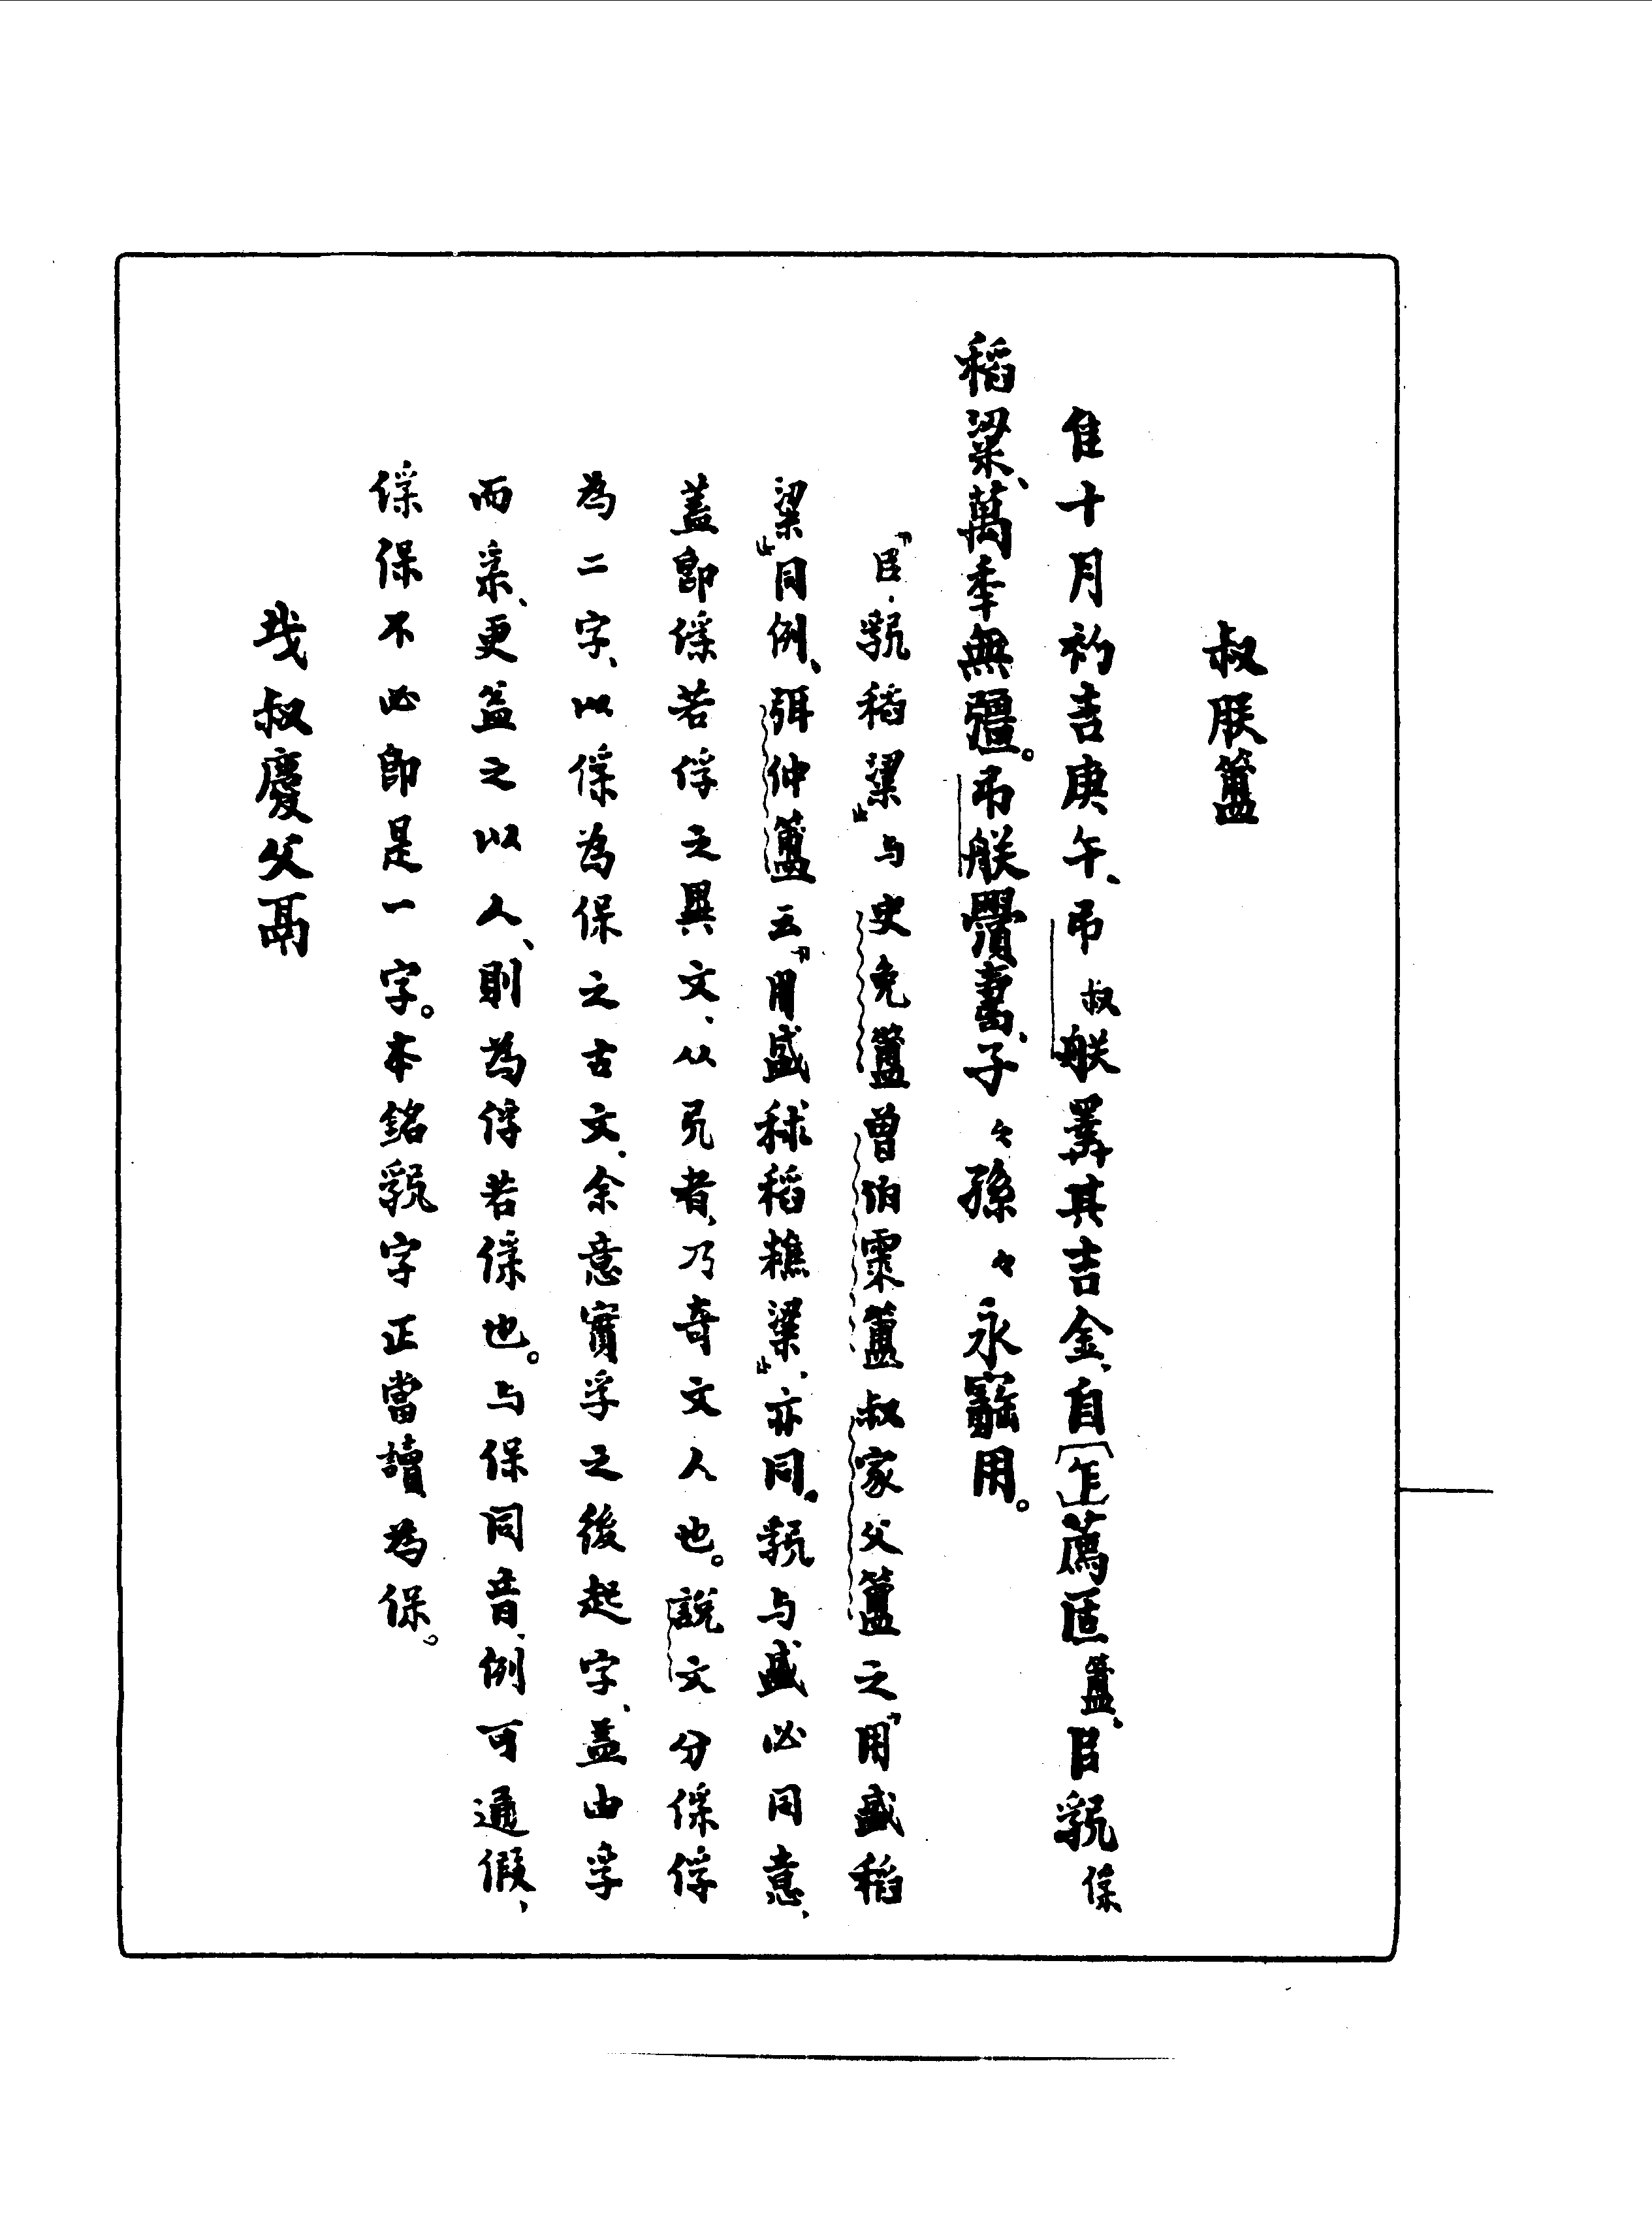 叔朕簠
隹十月初吉庚午、弔叔朕𢍰其吉金、自〔乍〕薦𠤳簠、㠯𤔲㑒
稻粱、萬年無疆。弔朕眉壽、子〻孫〻永寶用。
『㠯稻粱』与史免簠曾伯霥簠叔家父簠之『用盛稻
粱』同例、弭仲簠云『用盛秫稻穛粱』、亦同。与盛必同意、
蓋即㑒若俘之異文、从丮者、乃奇文人也。說文分㑒俘
為二字、以㑒為保之古文。余意實孚之後起字、蓋由孚
而采、更益之以人、則為俘若㑒也。与保同音、例可通假、
㑒保不必即是一字。本銘字正當讀為保。
𢦏叔慶父鬲